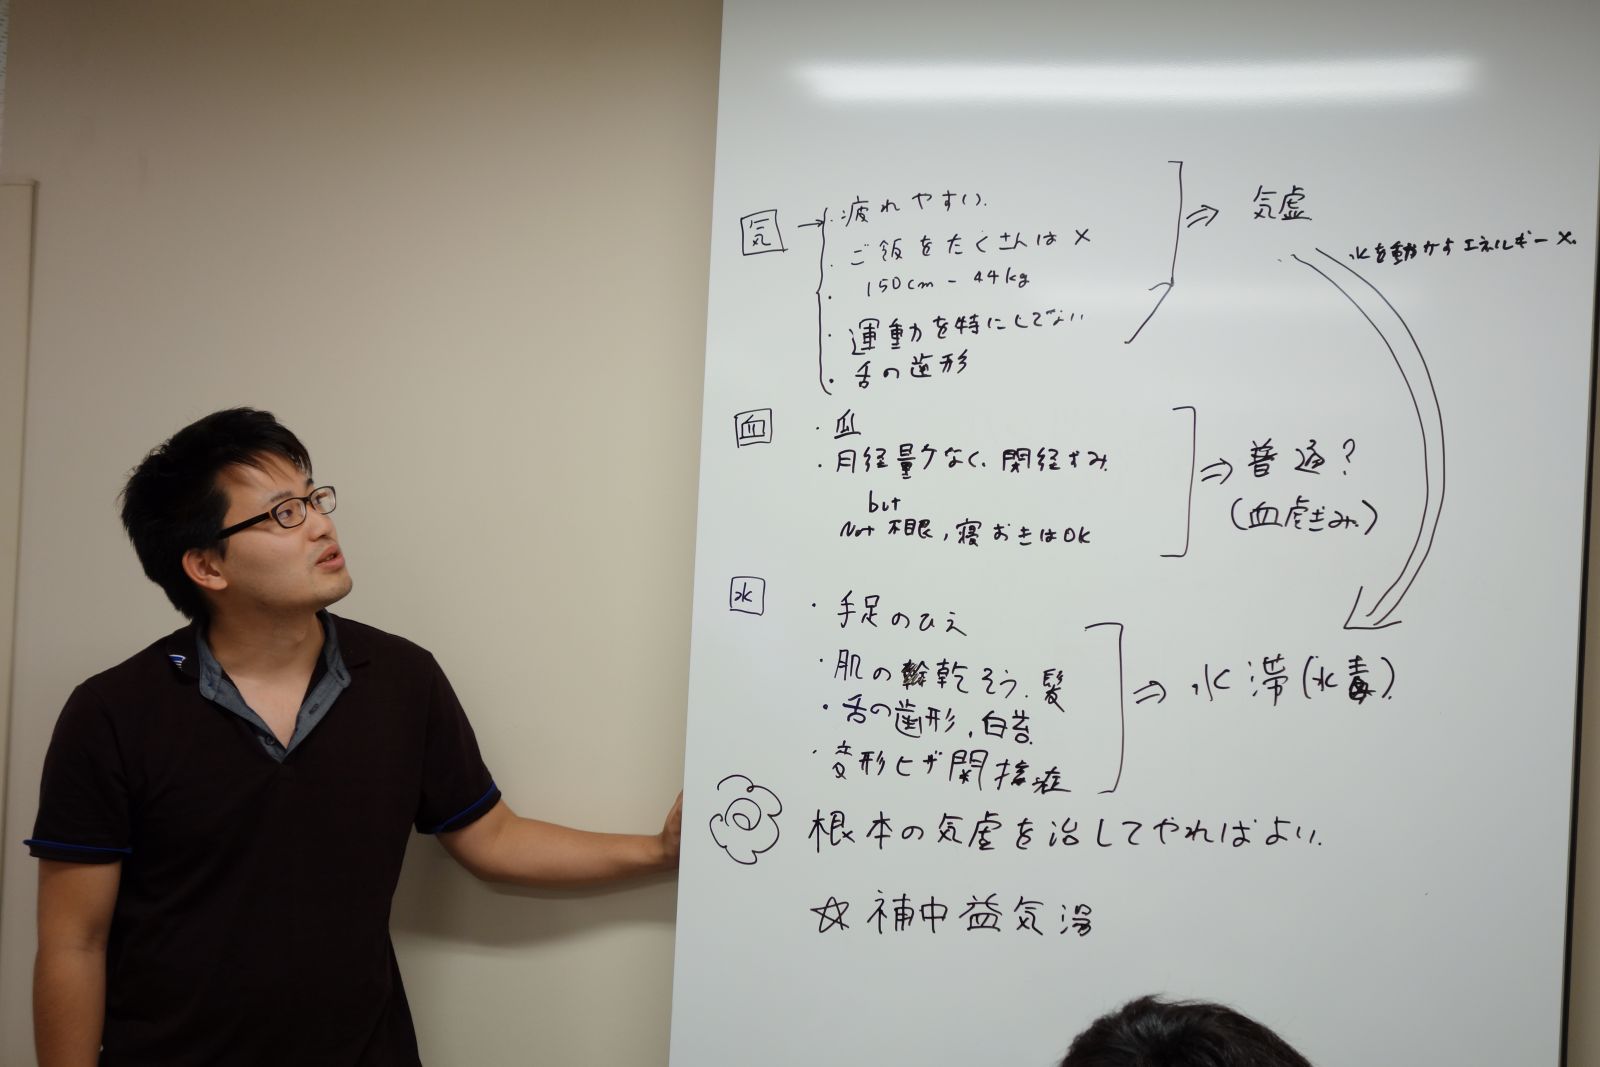 気 → ・疲れやすい.
・ご飯をたくさんは ×
・150cm - 44kg
・運動を特にしてない
・舌の歯形
⇒ 気虚
水を動かすエネルギー ×.
血 ・血
・月経量少なく、閉経すみ
but
Not 不眠, 寝おきはOK
⇒ 普通?
(血虚ぎみ)
水 ・手足のひえ
・肌の乾そう. 髪
・舌の歯形, 白苔
・変形ヒザ関接症
⇒ 水滞(水毒)
根本の気虚を治してやればよい.
☆補中益気湯